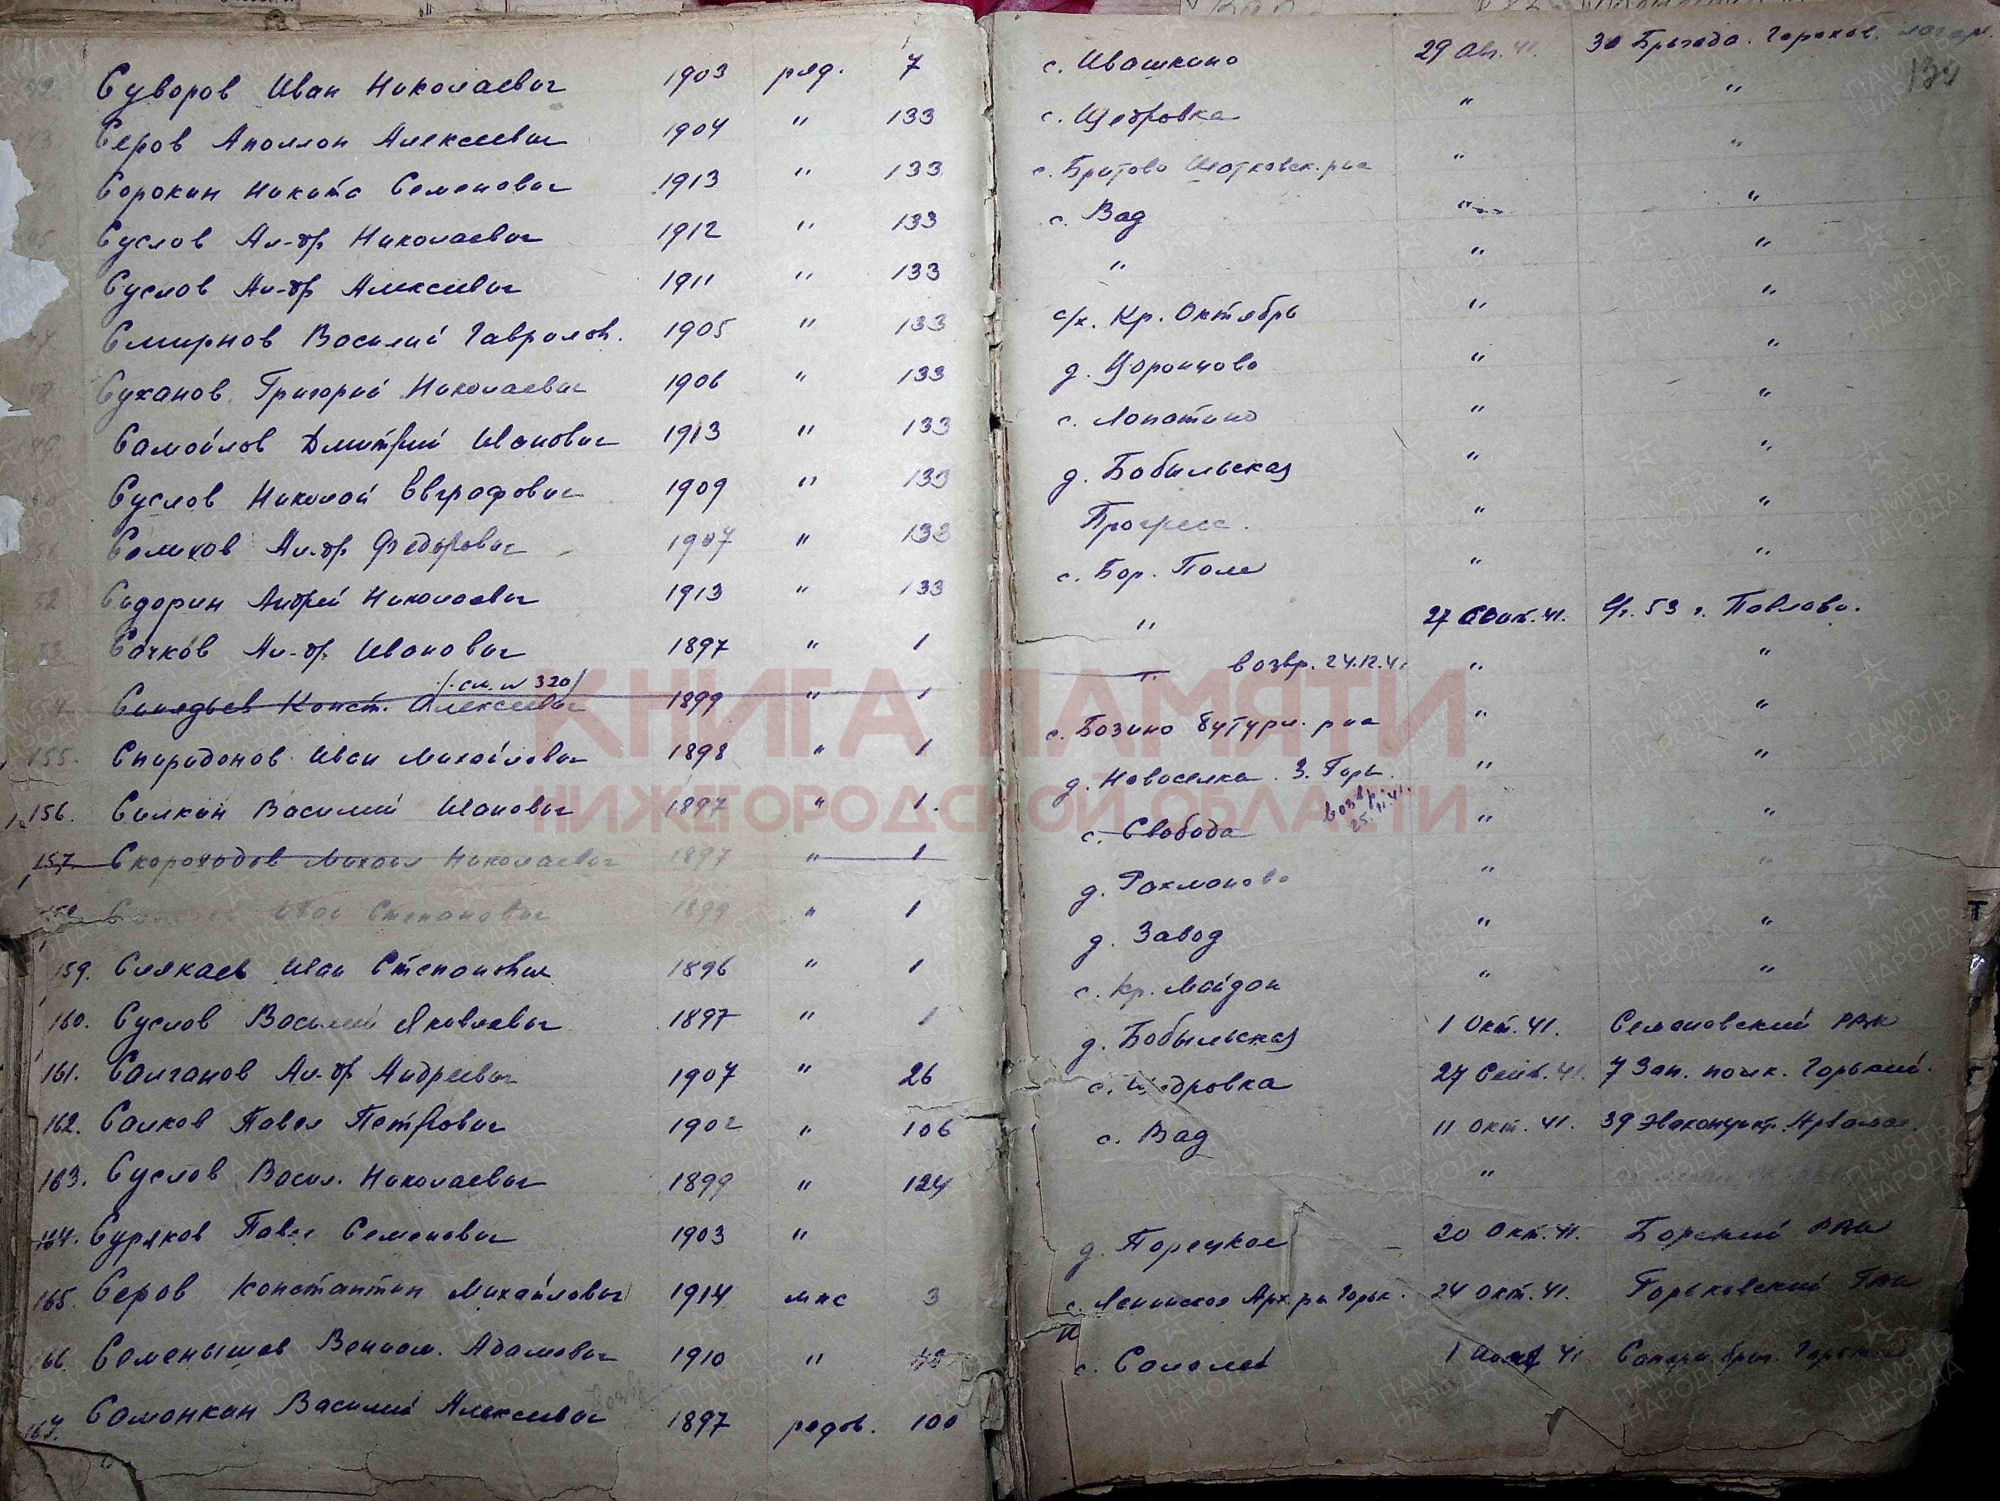 Суворов Иван Николаевич 1903 ряд. 7 с. Ивашкино 29 Авг. 41. 30 Бригада. Горьков.
Серов Аполлон Алексеевич 1904 " 133 с. Щедровка " "
Сорокин Никита Семенович 1913 " 133 с. Братово Шатковск. р-на " "
Суслов Ал-др Николаевич 1912 " 133 с. Вад " "
Суслов Ал-др Алексеевич 1911 " 133 " " "
Смирнов Василий Гаврилов. 1905 " 133 с/х. Кр. Октябрь " "
Суханов Григорий Николаевич 1906 " 133 д. " "
Самойлов Дмитрий Иванович 1913 " 133 с. Лопатино " "
Суслов Николай Евграфович 1909 " 133 д. Бобыльская " "
Ал-др Федорович 1907 " 133 Прогресс. " "
Сидорин Андрей Николаевич 1913 " 133 с. Бор. Поле " "
Сачков Ал-др Иванович 1897 " 1 " 27 Сент. 41. 53 г. Павлово.
/см. № 320/
Конст. Алексеевич 1899 " 1 " возвр. 24.12.41 " "
155. Спиридонов Иван Михайлович 1898 " 1 с. Бозино Бутурл. р-на " "
156. Силкин Василий Иванович 1897 " 1. д. Новоселка. З. Горь. " "
возвр. 25.11.41.
157. Скороходов Михаил Николаевич 1897 " 1 с. Свобода " "
158. Иван Степанович 1899 " 1 д. Рахманово " "
159. Слякаев Иван Степанович 1896 " 1 д. Завод " "
160. Суслов Василий Яковлевич 1897 " 1 с. Кр. Майдан " "
161. Салганов Ал-др Андреевич 1907 " 26 д. Бобыльская 1 Окт. 41. Семеновский РВК
162. Салков Павел Петрович 1902 " 106 с. Щедровка 27 Сент. 41. 7 Зап. полк. Горький.
163. Суслов Васил. Николаевич 1899 " 124 с. Вад 11 Окт. 41. 39 Эвакопункт. Арзамас.
164. Суряков Павел Семенович 1903 " "
165. Серов Константин Михайлович 1914 мнс 3 д. Порецкое 20 Окт. 41. Борский РВК
166. Семенышев Вениам. Адамович 1910 " с. Ленинское Арх. р-н Горьк. 24 Окт. 41. Горьковский ГВК
167. Саманкин Василий Алексеевич 1897 рядов. 100 с. 1 41 Горький
КНИГА ПАМЯТИ
НИЖЕГОРОДСКОЙ ОБЛАСТИ
ПАМЯТЬ НАРОДА